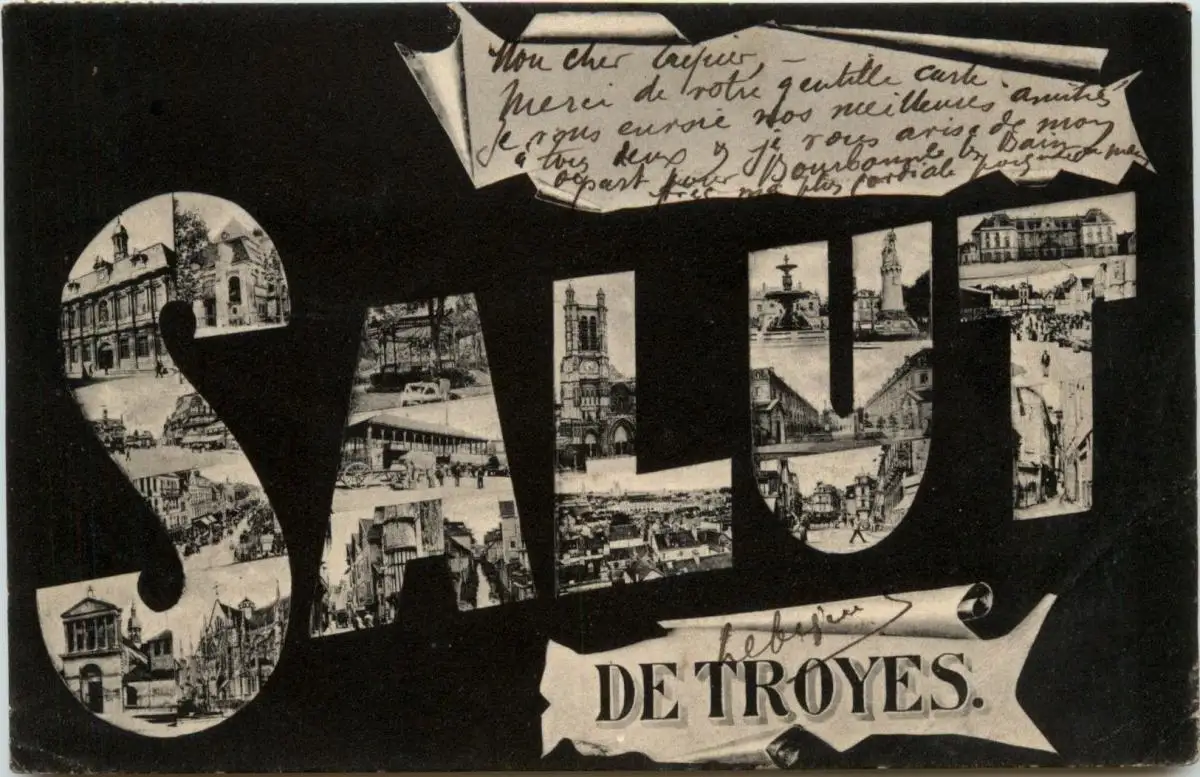 Mon cher
Merci de votre gentille carte.
Je vous envoie nos meilleures amitiés
à tous deux & je vous avise de mon
départ pour Bourbonne les Bains
avec ma plus cordiale poignée de main
SALUT
DE TROYES.